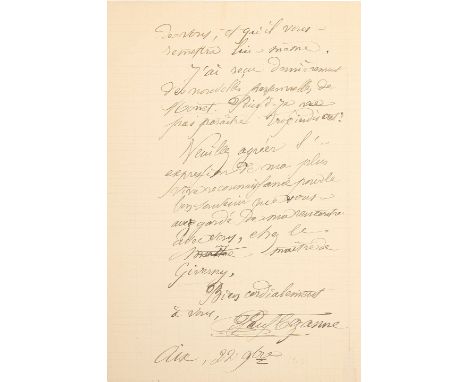 de vous, et qu'il vous
remettra lui-même.
J'ai reçu dernièrement
des nouvelles personnelles de
Monet. Puis-je ne
pas paraître trop indiscret?
Veuillez agréer l'
expression de ma plus
vive reconnaissance pour le
bon souvenir que vous
avez gardé de ma rencontre
avec vous, chez le
maître de
Giverny,
Bien cordialement
à vous,
Paul Cezanne
Aix, 22 9bre